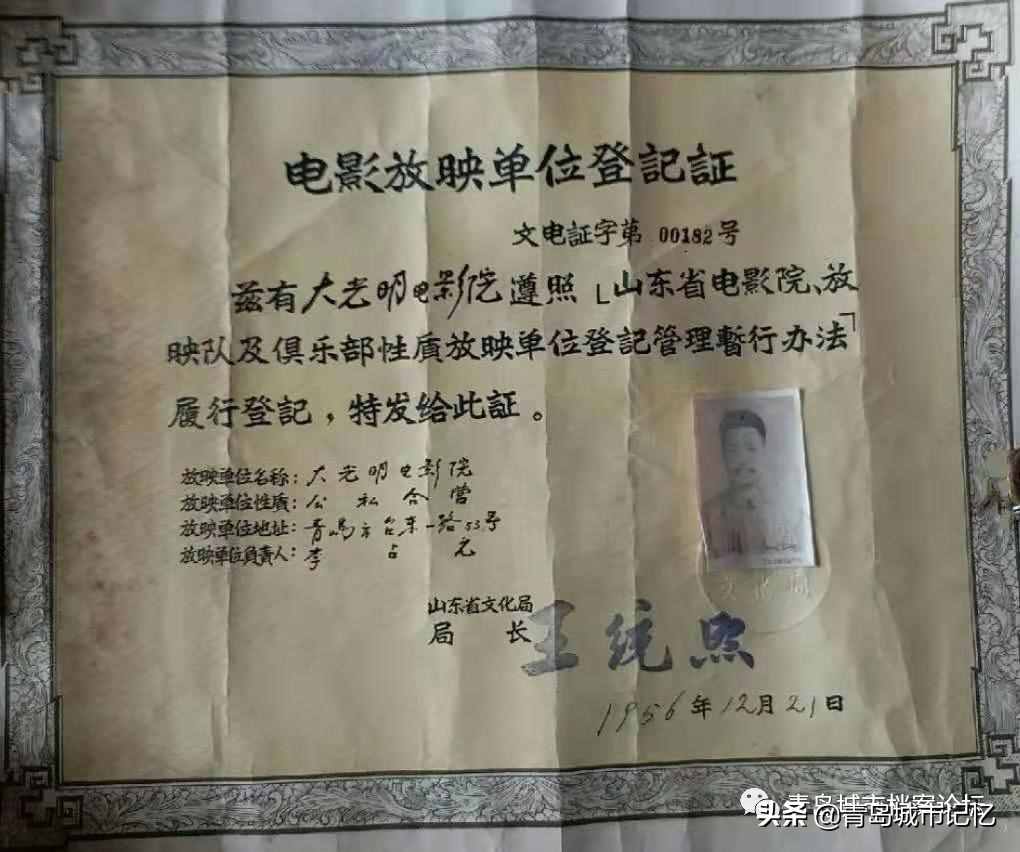 电影放映单位登記証
文电証字第 00182 号
兹有大光明电影院遵照「山东省电影院、放
映队及俱乐部性質放映单位登記管理暫行办法」
履行登記，特发给此証。
放映单位名称：大光明电影院
放映单位性質：公私合营
放映单位地址：青島市台东一路53号
放映单位負責人：李占元
山东省文化局
局 长 王统照
1956年12月21日
文化局
青岛城市档案论坛
头条 @青岛城市记忆